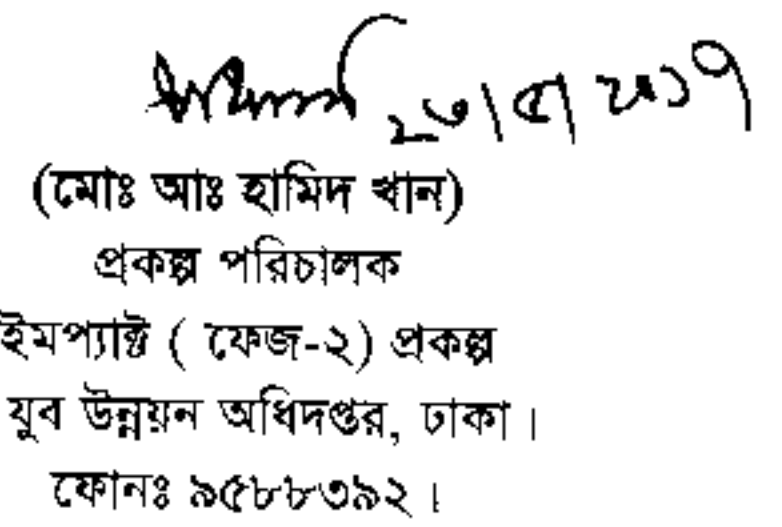 ২৩/৫/২০১৭
(মোঃ আঃ হামিদ খান)
প্রকল্প পরিচালক
ইমপ্যাক্ট ( ফেজ-২) প্রকল্প
যুব উন্নয়ন অধিদপ্তর, ঢাকা।
ফোনঃ ৯৫৮৮৩৯২।